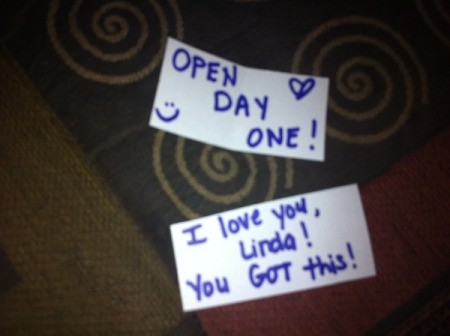 OPEN
DAY
ONE!
I love you,
Linda!
You GOT this!